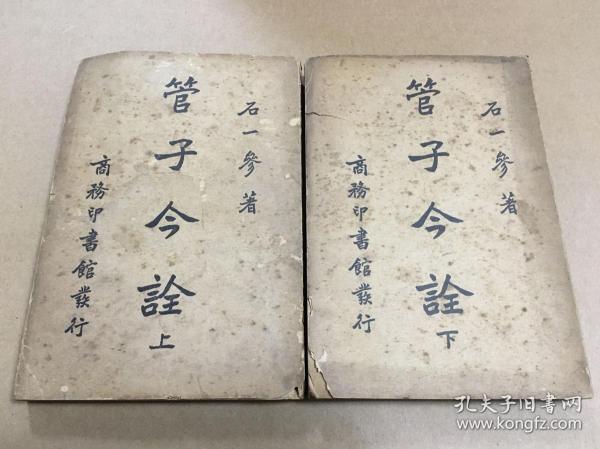 石一參著
管子今詮
上
商務印書館發行
石一參著
管子今詮
下
商務印書館發行
孔夫子旧书网
www.kongfz.com